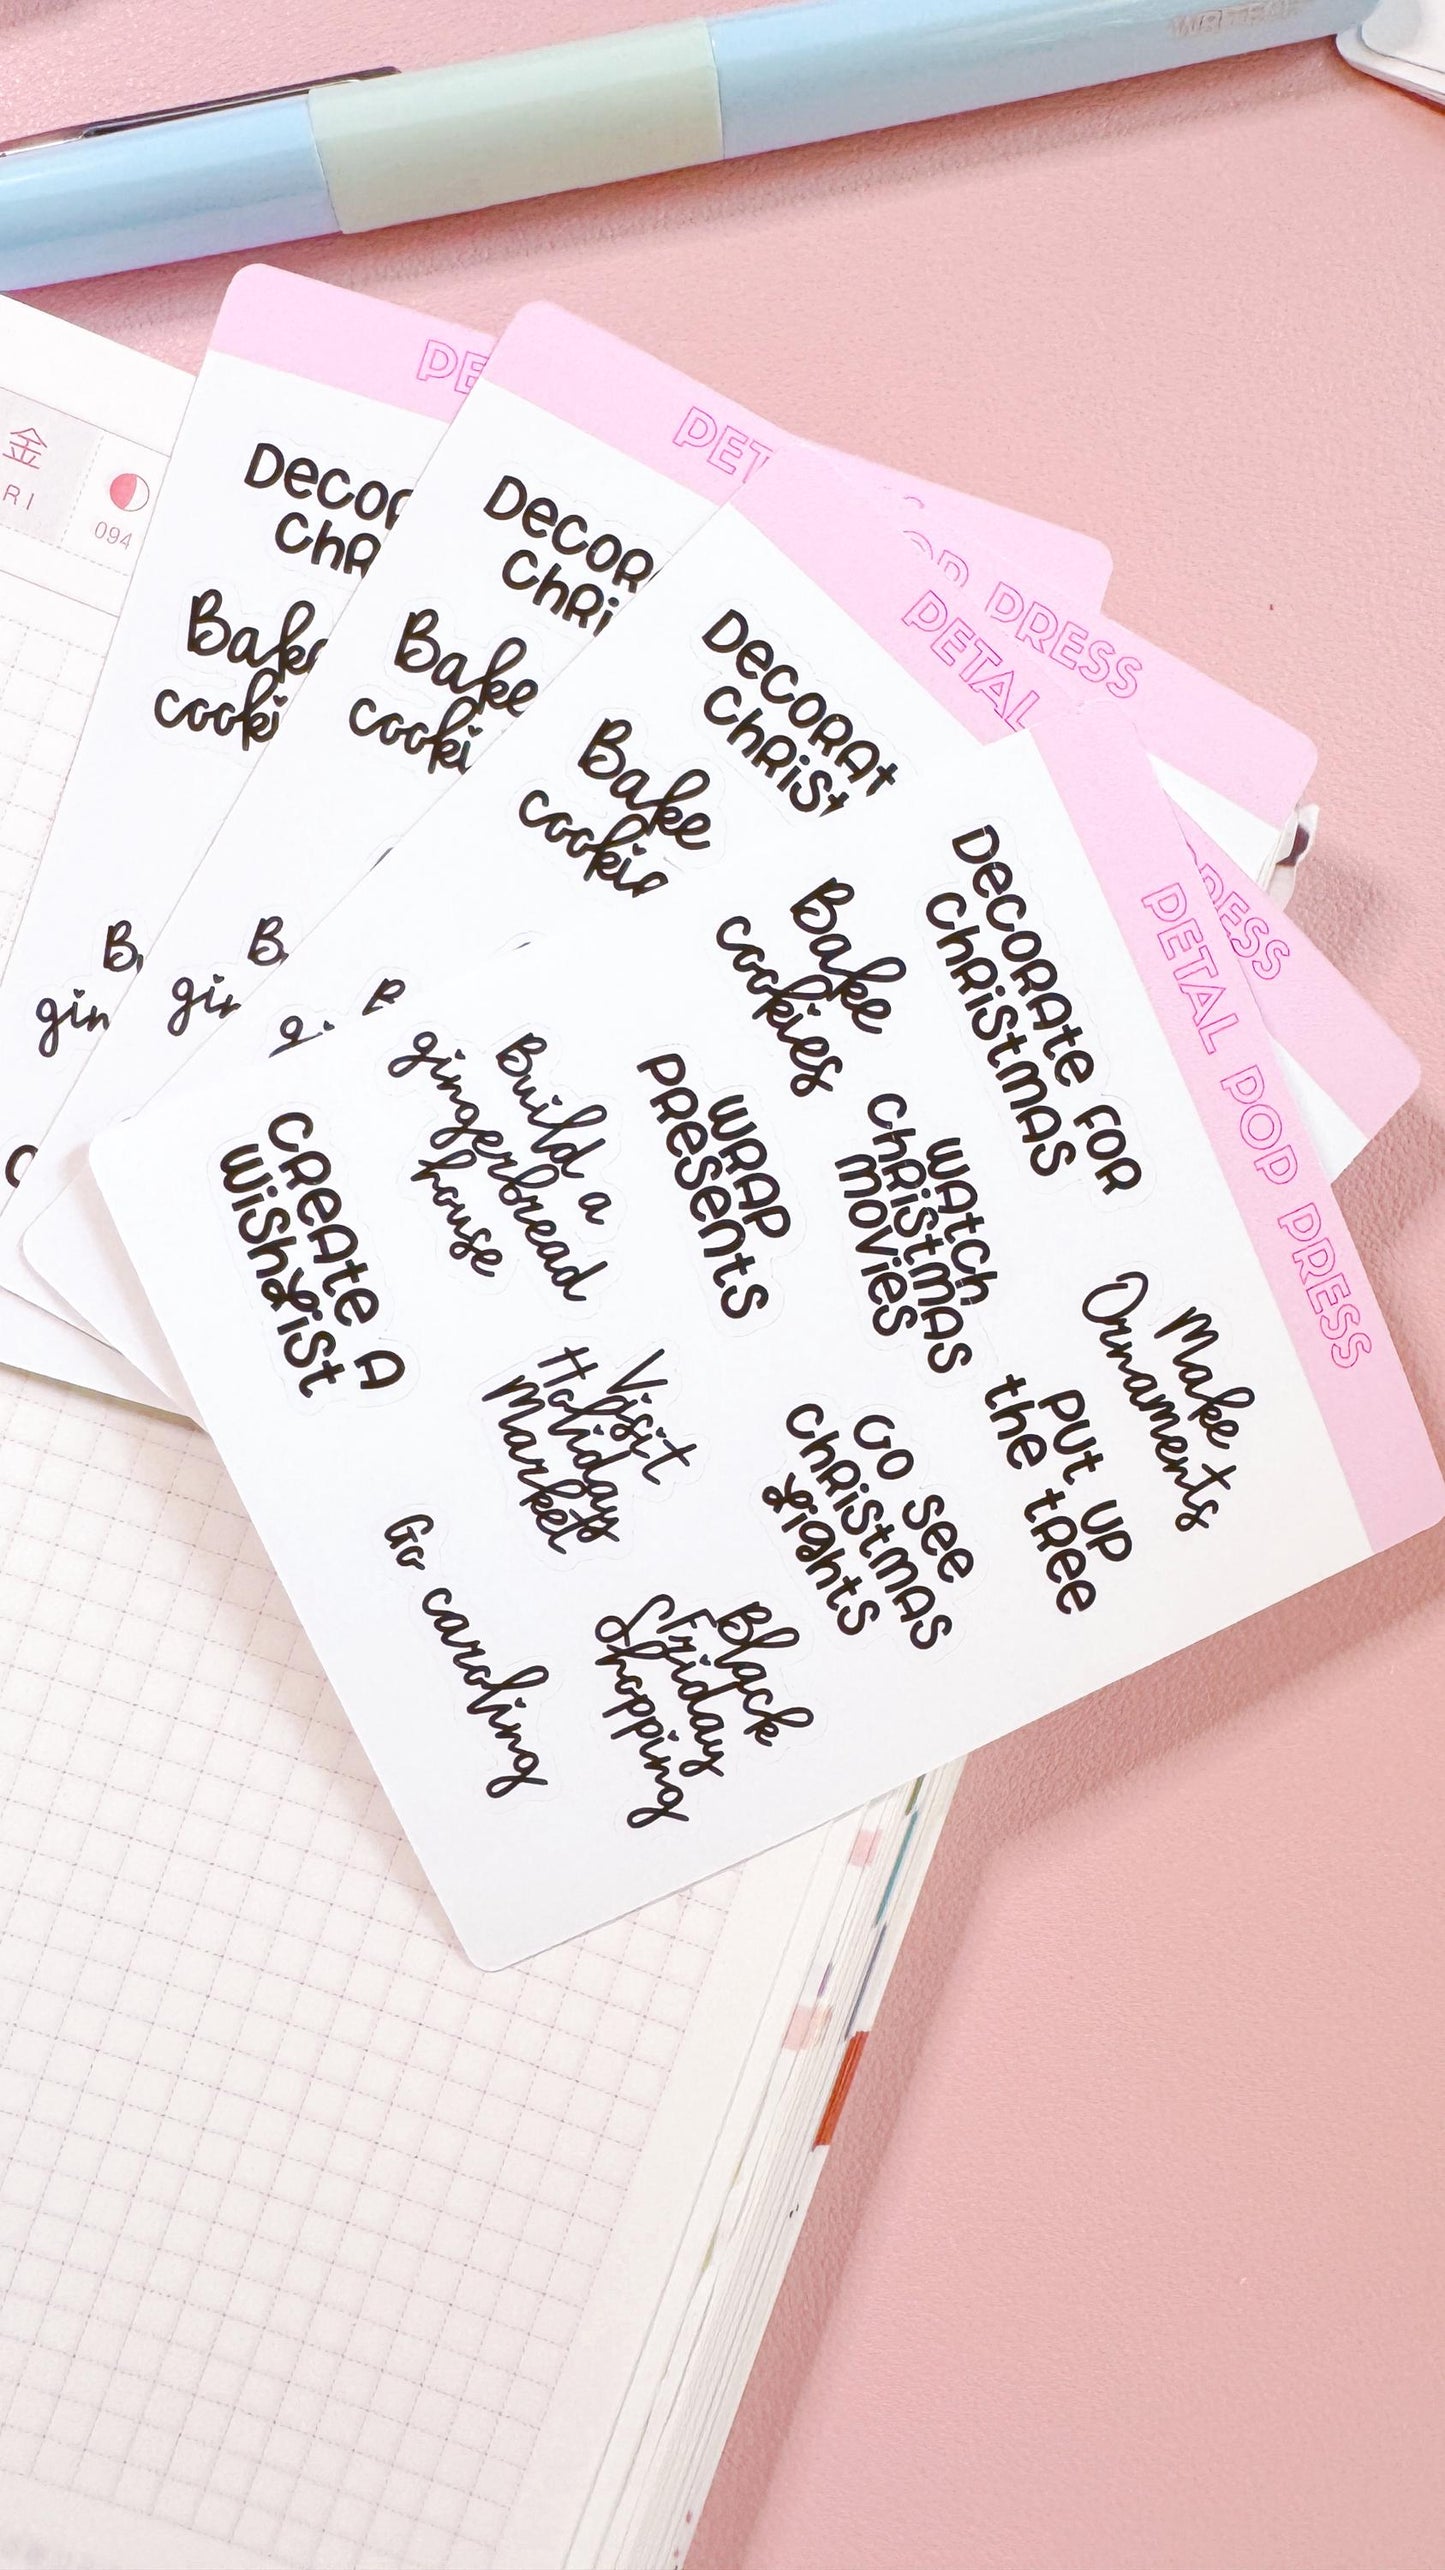 金
RI
094
PE
DECOR
CHR
Bake
cooki
B
gin
C
PET
DECOR
CHRI
Bake
cooki
B
gin
OP PRESS
PETAL
DECORAT
CHRIST
Bake
cookie
RESS
PETAL POP PRESS
DECORATE FOR
CHRISTMAS
Bake
cookies
WATCH
CHRISTMAS
MOVIES
WRAP
PRESENTS
Build a
gingerbread
house
CREATE A
WISHLIST
Make
Ornaments
PUT UP
THE TREE
GO SEE
CHRISTMAS
LIGHTS
Visit
Holiday
Market
Black
Friday
Shopping
Go caroling